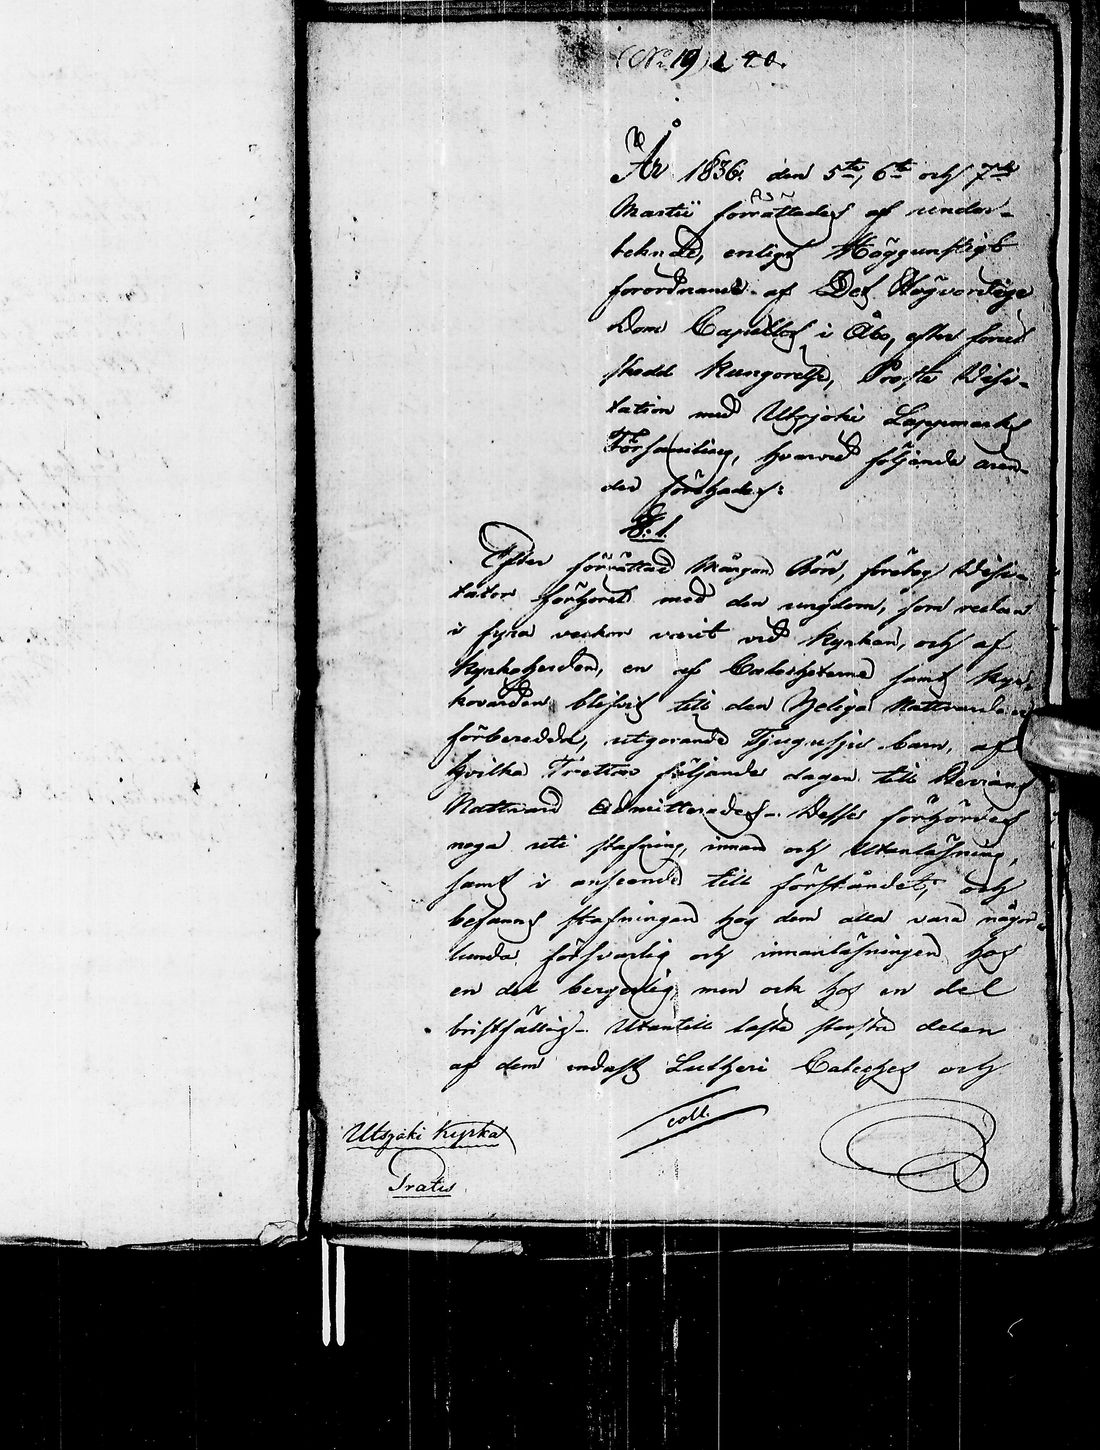 (No 19) 1 40.
År 1836. den 5te, 6te och 7de
Martii förrättades af under-
teknad, enligt Höggunstigt
förordnande af Det Högvördige
Dom Capitlet i Åbo, efter förut
skedd Kungörelse, Prosté Visi-
tation med Utsjoki Lappmarks
Församling, hvarvid följande ären-
der förehades:
§. 1.
Efter förrättad Morgon Bön, företog Visi-
tator förhöret med den ungdom, som redan
i fyra veckor varit vid Kyrkan, och af
Kyrkoherden, en af Catecheterne samt Kyr-
kovärden blifvit till den Heliga Nattvarden
förberedd, utgörande Tjugusju barn, af
hvilka Tretton följande dagen till Herrans
Nattvard admitterades. Desse förhördes
noga uti stafning, innan och Utanläsning,
samt i anseende till förståndet, och
befanns stafningen hos dem alla vara någor-
lunda försvarlig och innanläsningen hos
en del bergerlig, men ock hos en del
bristfällig. Utantill läste största delen
af dem endast Lutheri Cateches och
coll.
Utsjoki Kyrka
Gratis